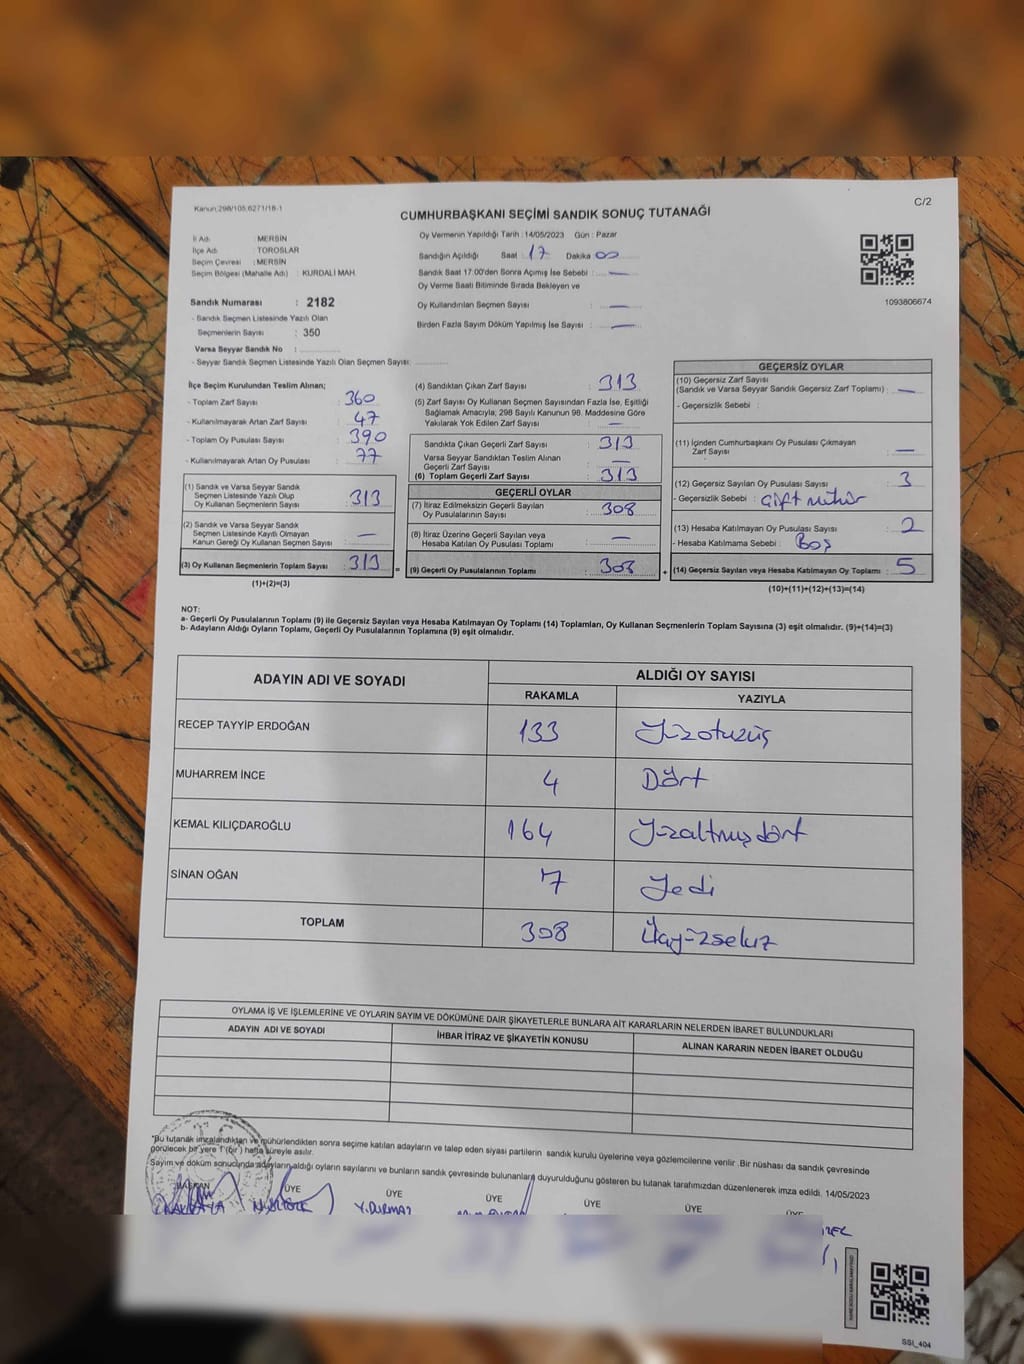 Kanun:298/105;6271/18-1
C/2
CUMHURBAŞKANI SEÇİMİ SANDIK SONUÇ TUTANAĞI
İl Adı : MERSİN
İlçe Adı : TOROSLAR
Seçim Çevresi : MERSİN
Seçim Bölgesi (Mahalle Adı) : KURDALİ MAH.
Sandık Numarası : 2182
- Sandık Seçmen Listesinde Yazılı Olan
Seçmenlerin Sayısı : 350
Varsa Seyyar Sandık No :
- Seyyar Sandık Seçmen Listesinde Yazılı Olan Seçmen Sayısı:
Oy Vermenin Yapıldığı Tarih : 14/05/2023 Gün : Pazar
Sandığın Açıldığı Saat : 17 Dakika 00
Sandık Saat 17:00'den Sonra Açımış İse Sebebi : —
Oy Verme Saati Bitiminde Sırada Bekleyen ve
Oy Kullandırılan Seçmen Sayısı : —
Birden Fazla Sayım Döküm Yapılmış İse Sayısı : —
1093806674
İlçe Seçim Kurulundan Teslim Alınan;
- Toplam Zarf Sayısı : 360
- Kullanılmayarak Artan Zarf Sayısı : 47
- Toplam Oy Pusulası Sayısı : 390
- Kullanılmayarak Artan Oy Pusulası : 77
(1) Sandık ve Varsa Seyyar Sandık
Seçmen Listesinde Yazılı Olup
Oy Kullanan Seçmenlerin Sayısı : 313
(2) Sandık ve Varsa Seyyar Sandık
Seçmen Listesinde Kayıtlı Olmayan
Kanun Gereği Oy Kullanan Seçmen Sayısı : —
(3) Oy Kullanan Seçmenlerin Toplam Sayısı : 313 =
(1)+(2)=(3)
(4) Sandıktan Çıkan Zarf Sayısı : 313
(5) Zarf Sayısı Oy Kullanan Seçmen Sayısından Fazla İse, Eşitliği
Sağlamak Amacıyla; 298 Sayılı Kanunun 98. Maddesine Göre
Yakılarak Yok Edilen Zarf Sayısı : —
Sandıkta Çıkan Geçerli Zarf Sayısı : 313
Varsa Seyyar Sandıktan Teslim Alınan
Geçerli Zarf Sayısı : —
(6) Toplam Geçerli Zarf Sayısı : 313
GEÇERLİ OYLAR
(7) İtiraz Edilmeksizin Geçerli Sayılan
Oy Pusulalarının Sayısı : 308
(8) İtiraz Üzerine Geçerli Sayılan veya
Hesaba Katılan Oy Pusulası Toplamı : —
(9) Geçerli Oy Pusulalarının Toplamı : 308 +
GEÇERSİZ OYLAR
(10) Geçersiz Zarf Sayısı
(Sandık ve Varsa Seyyar Sandık Geçersiz Zarf Toplamı) : —
- Geçersizlik Sebebi :
(11) İçinden Cumhurbaşkanı Oy Pusulası Çıkmayan
Zarf Sayısı : —
(12) Geçersiz Sayılan Oy Pusulası Sayısı : 3
- Geçersizlik Sebebi : Çift mühür
(13) Hesaba Katılmayan Oy Pusulası Sayısı : 2
- Hesaba Katılmama Sebebi : Boş
(14) Geçersiz Sayılan veya Hesaba Katılmayan Oy Toplamı : 5
(10)+(11)+(12)+(13)=(14)
NOT:
a- Geçerli Oy Pusulalarının Toplamı (9) ile Geçersiz Sayılan veya Hesaba Katılmayan Oy Toplamı (14) Toplamları, Oy Kullanan Seçmenlerin Toplam Sayısına (3) eşit olmalıdır. (9)+(14)=(3)
b- Adayların Aldığı Oyların Toplamı, Geçerli Oy Pusulalarının Toplamına (9) eşit olmalıdır.
ADAYIN ADI VE SOYADI
ALDIĞI OY SAYISI
RAKAMLA YAZIYLA
RECEP TAYYİP ERDOĞAN 133 Yüzotuzüç
MUHARREM İNCE 4 Dört
KEMAL KILIÇDAROĞLU 164 Yüzaltmışdört
SİNAN OĞAN 7 Yedi
TOPLAM 308 Üçyüzsekiz
OYLAMA İŞ VE İŞLEMLERİNE VE OYLARIN SAYIM VE DÖKÜMÜNE DAİR ŞİKAYETLERLE BUNLARA AİT KARARLARIN NELERDEN İBARET BULUNDUKLARI
ADAYIN ADI VE SOYADI İHBAR İTİRAZ VE ŞİKAYETİN KONUSU ALINAN KARARIN NEDEN İBARET OLDUĞU
*Bu tutanak imzalandıktan ve mühürlendikten sonra seçime katılan adayların ve talep eden siyasi partilerin sandık kurulu üyelerine veya gözlemcilerine verilir .Bir nüshası da sandık çevresinde
görülecek bir yere 1 (bir) hafta süreyle asılır.
Sayım ve döküm sonucunda adayların aldığı oyların sayılarını ve bunların sandık çevresinde bulunanlara duyurulduğunu gösteren bu tutanak tarafımızdan düzenlenerek imza edildi. 14/05/2023
BAŞKAN ÜYE ÜYE ÜYE ÜYE ÜYE ÜYE
Y.DURMAZ
SSI_404